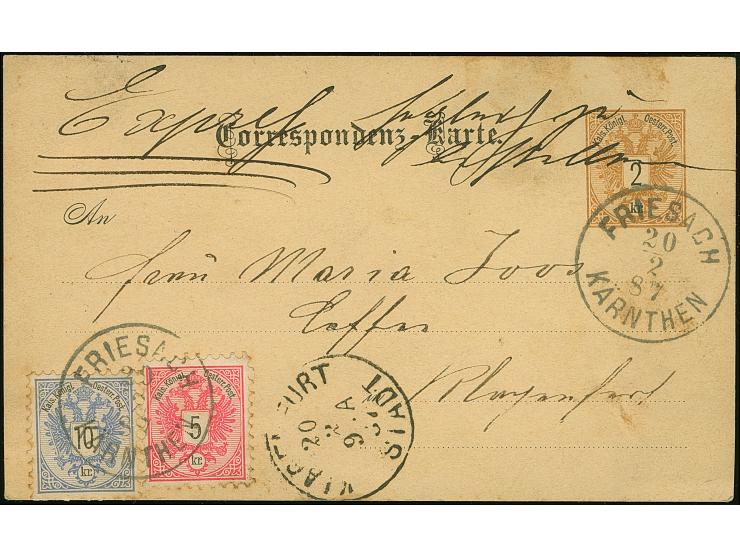 Expreß sofort zu
Correspondenz-Karte.
bestellen
Kais. Königl. Oesterr. Post.
2
kr.
FRIESACH
20
2
87
KÄRNTHEN
An
Frau Maria Joos
Caffee
in Klagenfurt
FRIESACH
KÄRNTHEN
Kais. Königl. Oesterr. Post.
10
kr.
Kais. Königl. Oesterr. Post.
5
kr.
KLAGENFURT
20
2
9. A
STADT